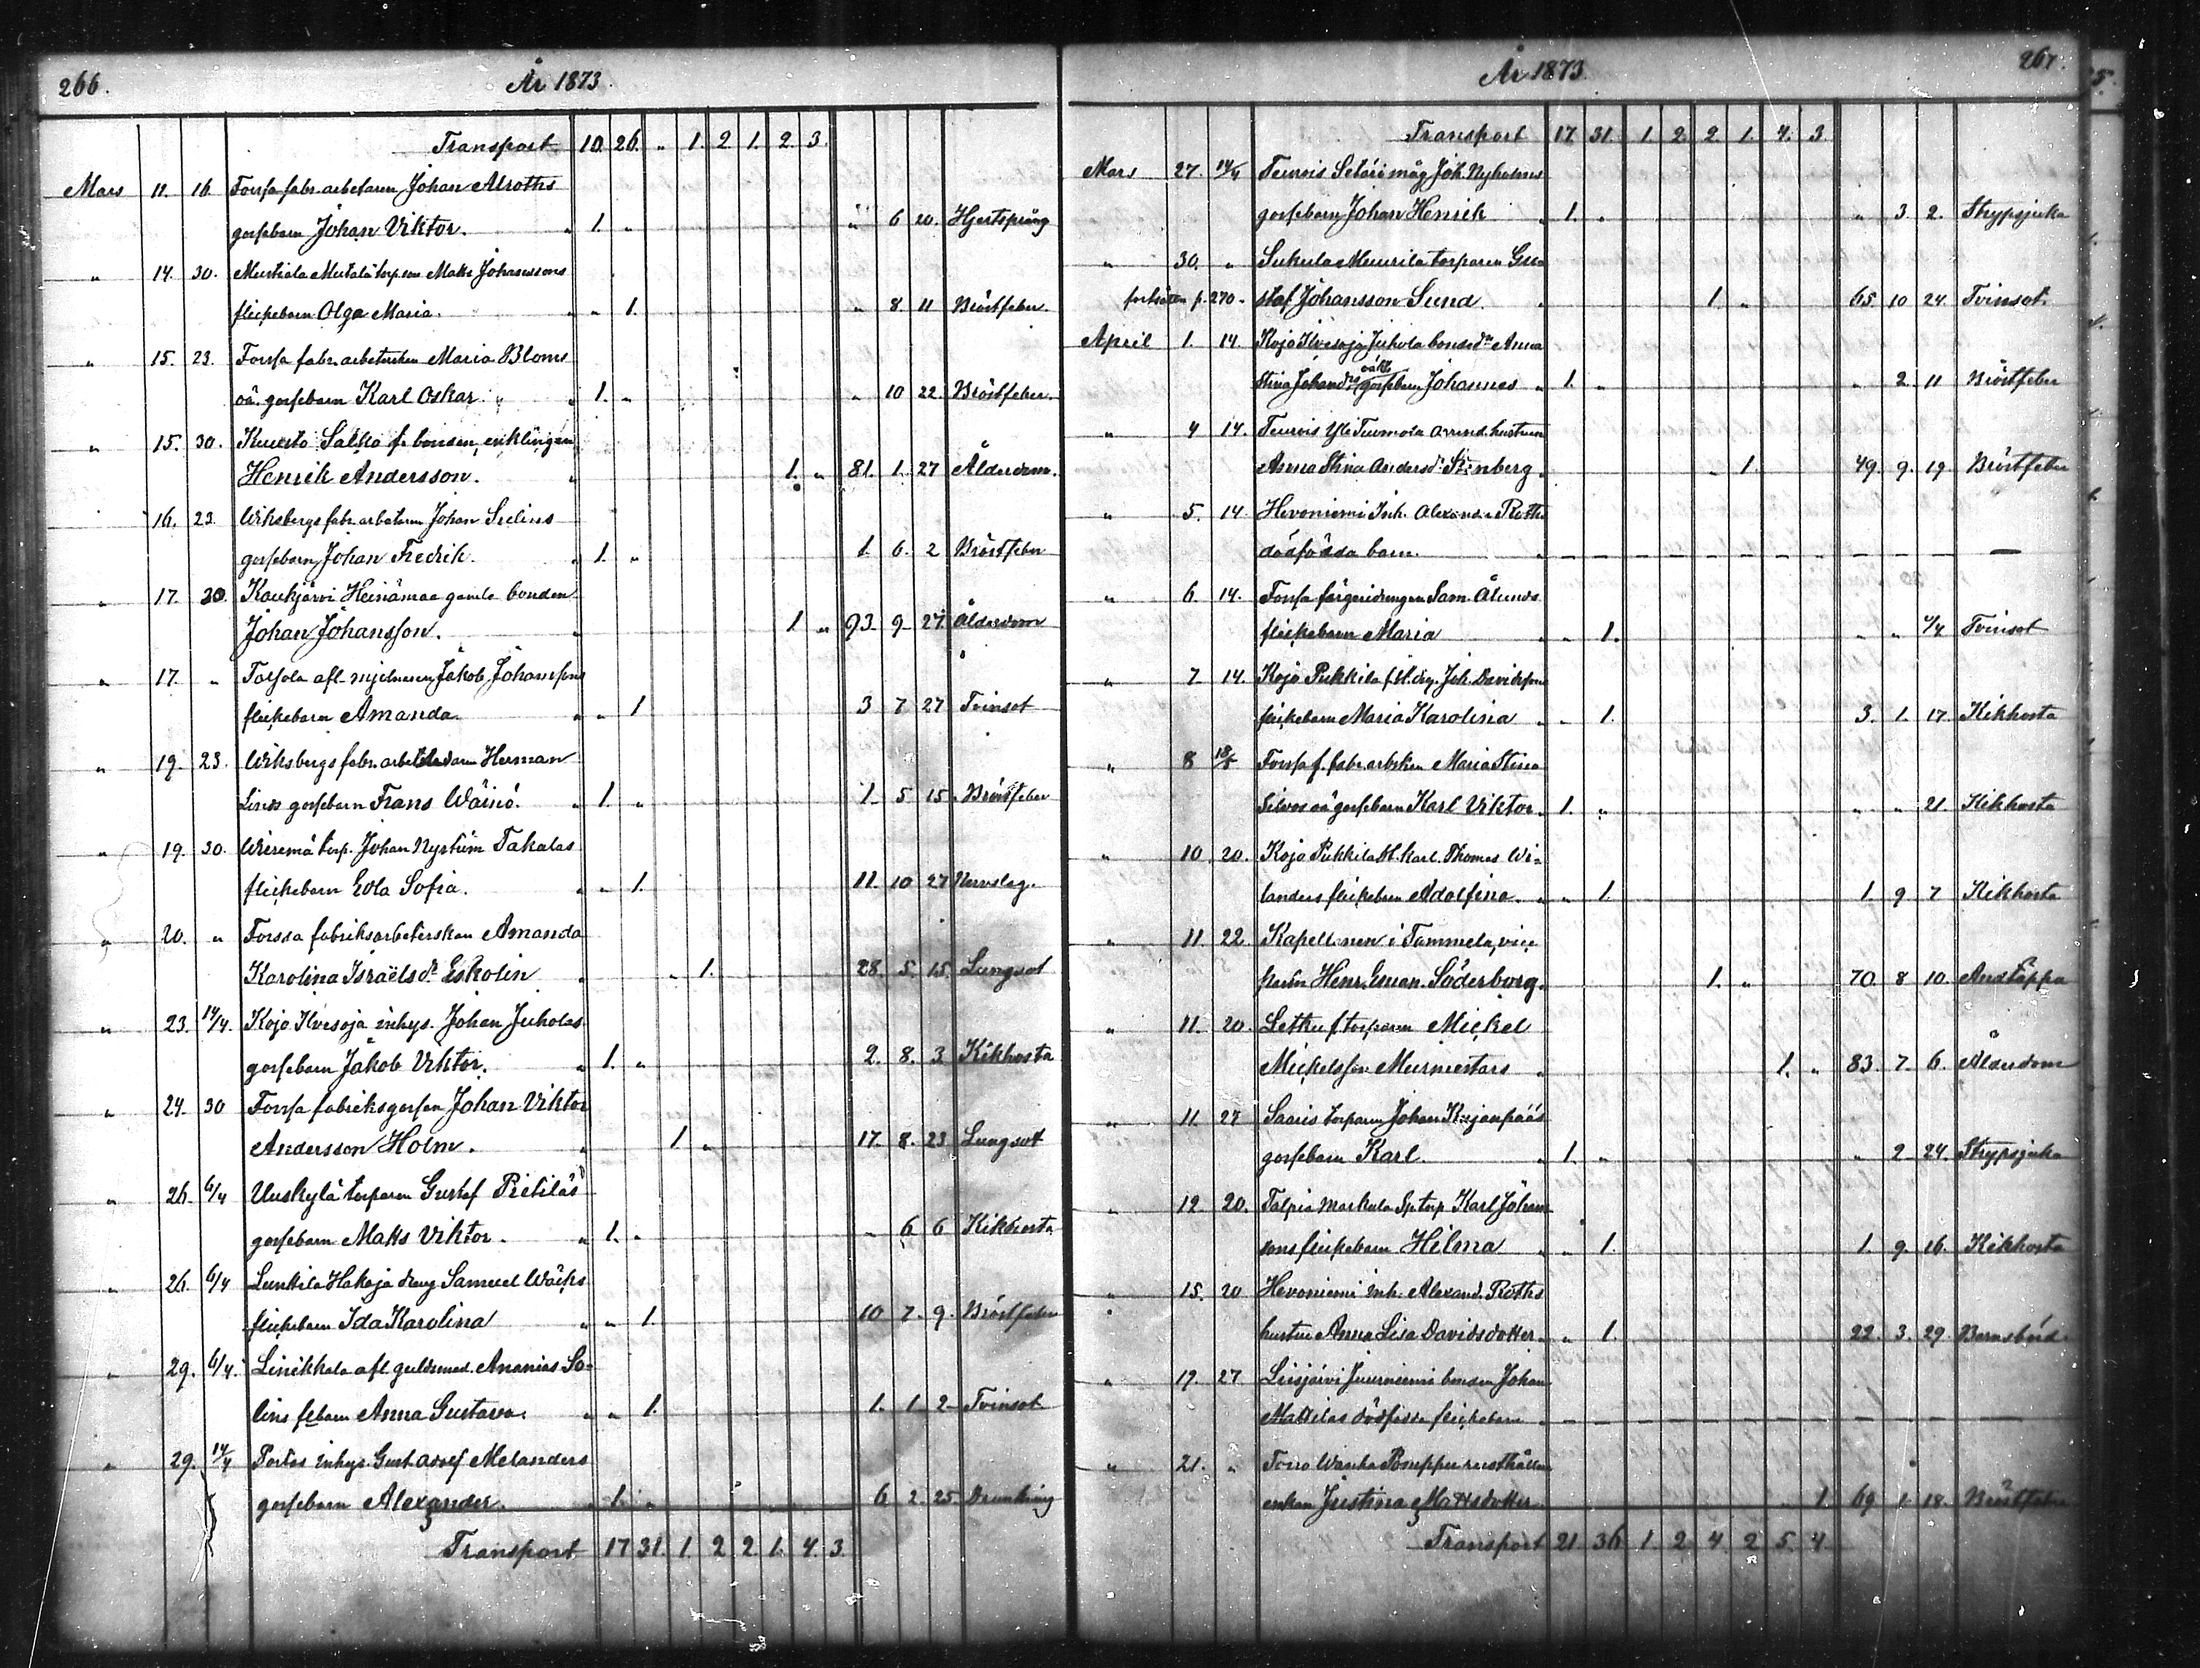 266.
År 1873.
Transport 10. 26. „ 1. 2 1. 2. 3.
Mars 12. 16. Forssa fabr. arbetaren Johan Alroths
gossebarn Johan Viktor. „ 1. „ „ 6 20. Hjertsprång
„ 14. 30. Mustiala Mustala torp. son Matts Johanssons
flickebarn Olga Maria. „ „ 1. „ 8. 11 Bröstfeber.
„ 15. 23. Forssa fabr. arbeterskan Maria Bloms
oä. gossebarn Karl Oskar. „ „ 1. „ „ 10 22. Bröstfeber.
„ 15. 30. Kuusto Salko f. bonden, enklingen
Henrik Andersson. „ 1. „ 81. 1. 27 Ålderdom.
16. 23. Wiksbergs fabr. arbetaren Johan Selins
gossebarn Johan Fredrik. „ 1. „ 1. 6. 2 Bröstfeber
„ 17. 30. Kaukjärvi Heinämaa gamle bonden
Johan Johansson. „ 1 „ 93. 9 27. Ålderdom
„ 17. „ Torsola afl. mjölnaren Jakob Johanssons
flickebarn Amanda. „ „ 1 3 7 27 Tvinsot
„ 19. 23. Wiksbergs fabr. Herman
Linds gossebarn Frans Wäinö. „ 1. „ 1. 5 15. Bröstfeber
„ 19. 30. torp. Johan Takalas
flickebarn Eva Sofia. „ „ 1. 11. 10 27 Nervslag.
„ 20. „ Forssa fabriksarbeterskan Amanda
Karolina Israëlsdr Eskolin „ „ 1. 28. 5. 15. Lungsot
„ 23. 14/4. Kojo Ilvesoja inhys. Johan Juholas
gossebarn Jakob Viktor. „ 1. „ 2. 8. 3 Kikhosta
„ 24. 30 Forssa fabriksgossen Johan Viktor
Andersson Holm. „ 1 „ 17. 8. 23 Lungsot
„ 26. 6/4 Uuskylä torparen Gustaf Pietiläs
gossebarn Matts Viktor. „ 1. „ „ 6 6 Kikhosta
„ 26. 6/4 Lunkila Hakoja dreng Samuel
flickebarn Ida Karolina „ „ 1. 10 7. 9. Bröstfeber
„ 29. 6/4. Linikkala afl. guldsmed. Ananias So-
lins fl.barn Anna Gustava. „ „ 1. 1. 1. 2 Tvinsot
„ 29. 14/4 Portas inhys. Gust. Adolf Melanders
gossebarn Alexander. „ 1. „ 6 2. 25 Drunkning
Transport 17 31. 1. 2 2. 1. 4. 3.
267.
År 1873.
Transport 17. 31. 1. 2. 2. 1. 4. 3.
Mars 27. 14/4 Teurois Seläri måg Joh. Nyholms
gossebarn Johan Henrik „ 1. „ „ 3. 2. Strypsjuka
„ 30. „ Sukula Muurila torparen Gu-
fortsätter p. 270. staf Johansson Sund. „ 1. „ 65 10 24. Tvinsot.
April 1. 14. Kojo Ilvesoja Juhola bonsdr Anna
Stina Johansdrs oäkta gossebarn Johannes „ 1. „ „ 2. 11 Bröstfeber
„ 4 14. Teurois Yli Tuomola arrend. hustrun
Anna Stina Andersdr Stenberg. „ 1. 49. 9. 19. Bröstfeber
„ 5. 14. Hevoniemi Inh. Alexander Roths
dödfödda barn. „
„ 6. 14. Forssa färgeridrengen Sam. Ålunds
flickebarn Maria „ „ 1. „ „ Tvinsot
„ 7. 14. Kojo Pukkila Joh. Davidssons
flickebarn Maria Karolina „ „ 1. 3. 1. 17. Kikhosta
„ 8 18/5 Forssa f. fabr.arbskan Maria Stina
Silvos oä gossebarn Karl Viktor. 1. „ „ „ 21 Kikhosta
„ 10. 20. Kojo Pukkila st. karl. Thomas Wi-
landers flickebarn Adolfina. „ „ 1. 1. 9 7 Kikhosta
„ 11. 22. Kapellanen i Tammela, vice
Henr. Eman. Söderborg. 1. „ 70. 8 10. Andtäppa
„ 11. 20. Letku f. torparen Mickel
Mickelsson Murmestars „ 1. „ 83. 7. 6. Ålderdom
„ 11. 27 Saaris torparen Johan Kujanpääs
gossebarn Karl. „ 1. „ „ 2 24. Strypsjuka
„ 12 20. Talpia Markula Sp.torp Karl Johans-
sons flickebarn Hilma „ „ 1. 1. 9. 16. Kikhosta
„ 15. 20 Hevoniemi inh. Alexand. Roths
hustru Anna Lisa Davidsdotter. „ „ 1. 22. 3. 29. Barnsbörd.
„ 19. 27 Liesjärvi bonden Johan
Mattilas dödfödda flickebarn „
„ 21. „ Torro Wanha Pomppu rusthållare
enkan Justina Mattsdotter „ 1. 69. 1. 18. Bröstfeber
Transport 21. 36. 1. 2. 4. 2. 5. 4.